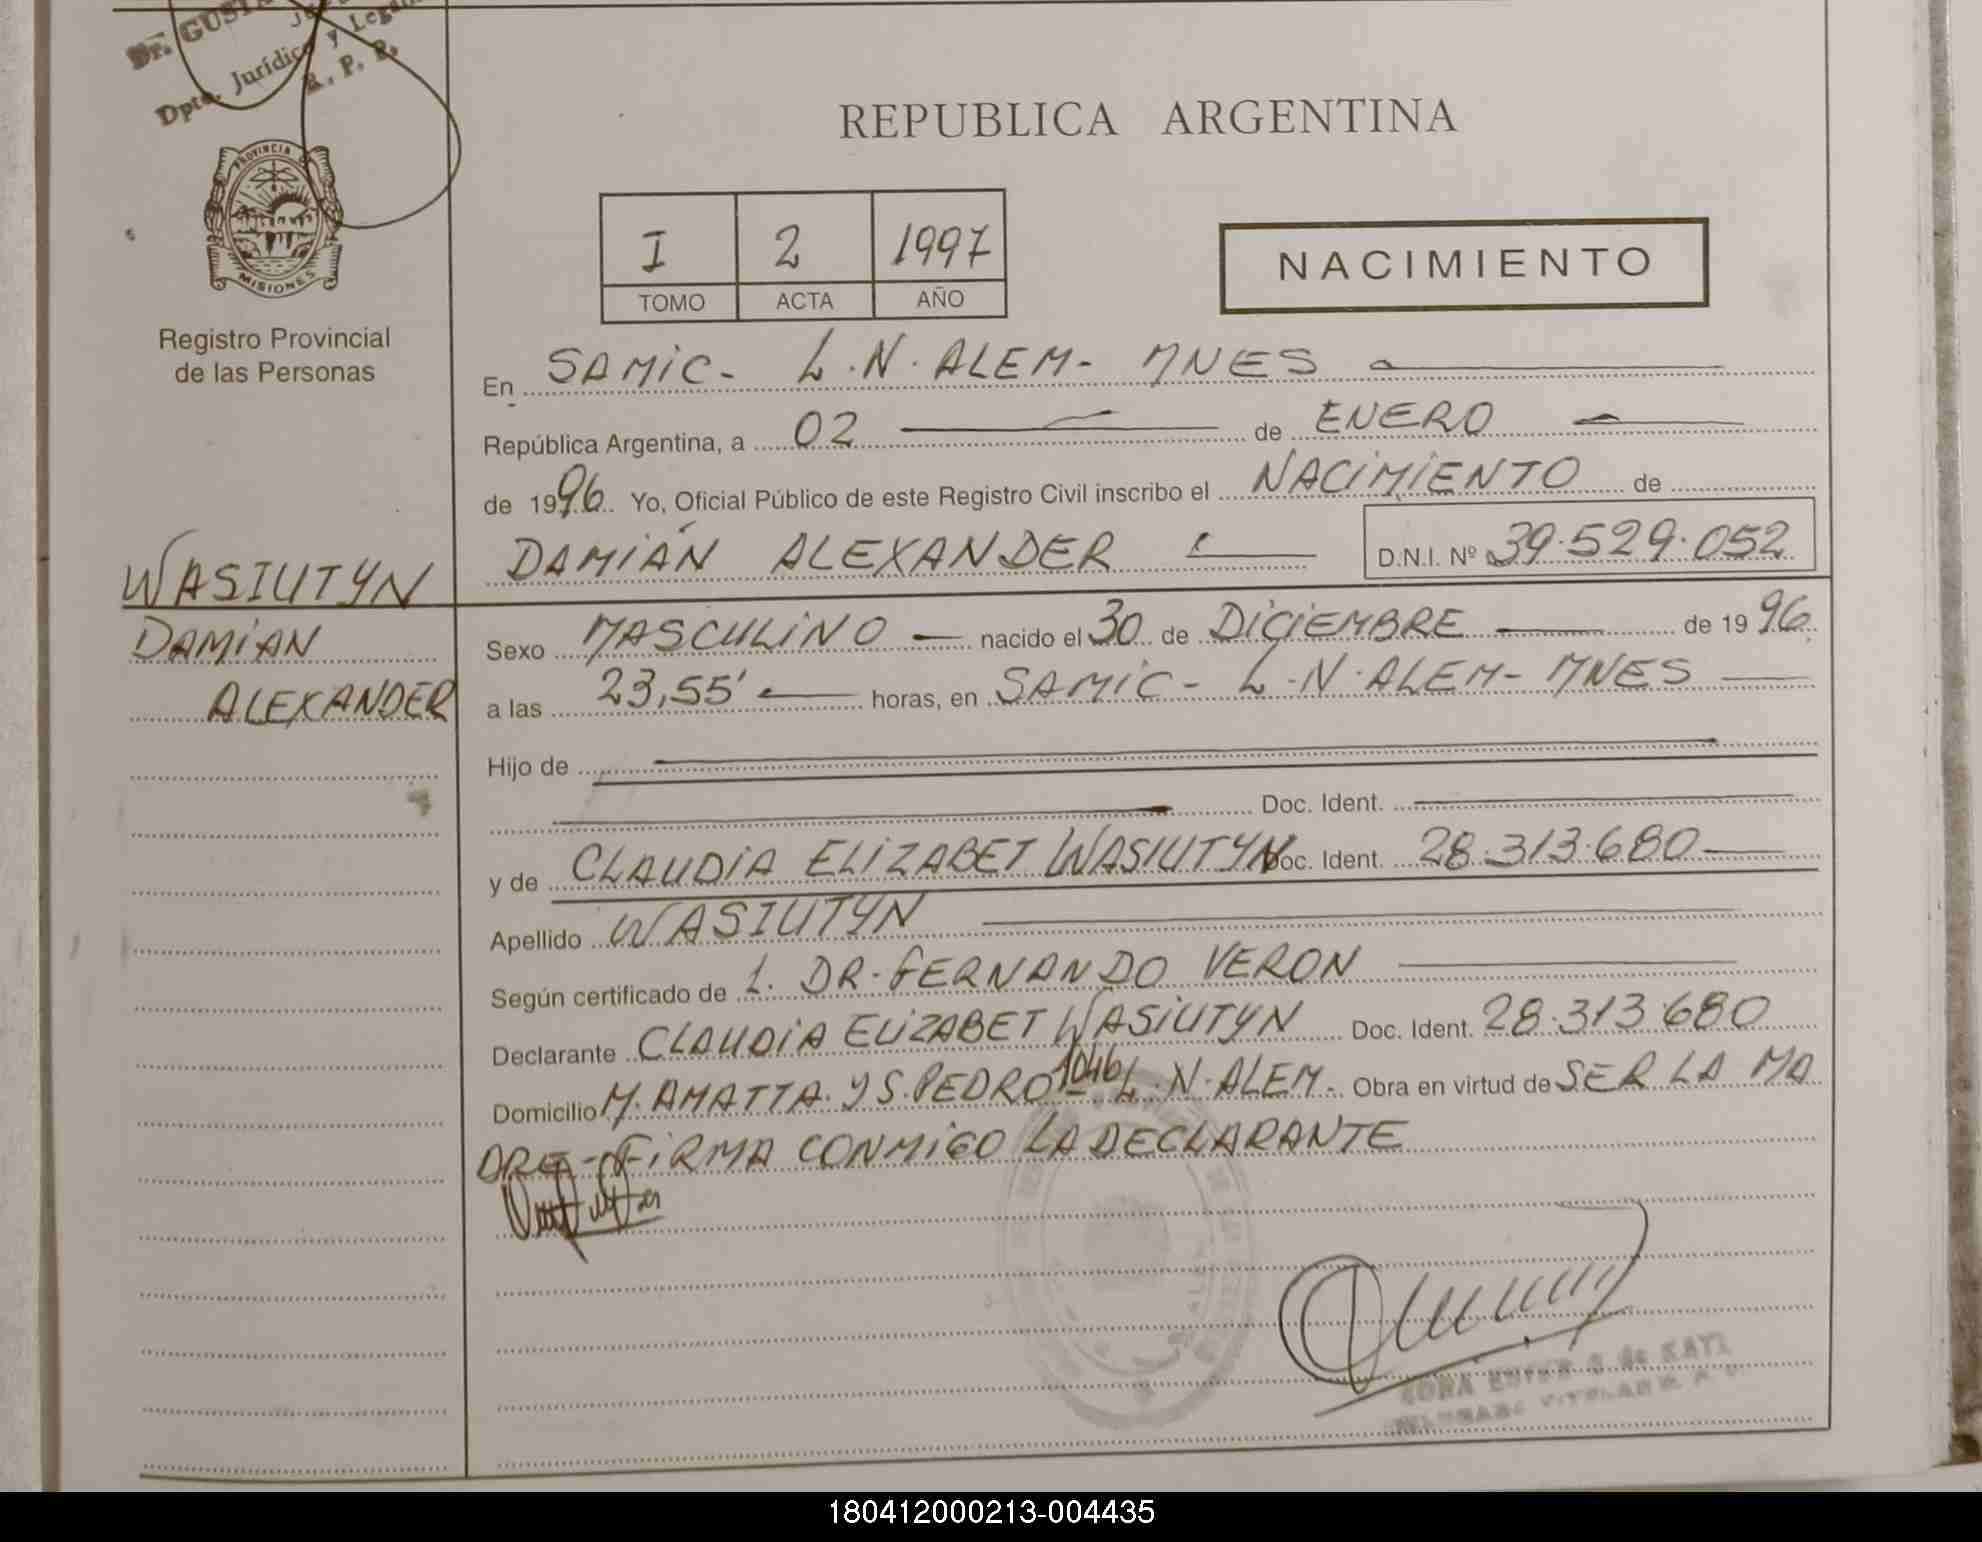 Dr. GUSTA
Dpto. Jurídico y Legal
R. P. P.
PROVINCIA DE
MISIONES
Registro Provincial
de las Personas
WASIUTYN
DAMIAN
ALEXANDER
REPUBLICA ARGENTINA
I 2 1997
TOMO ACTA AÑO
NACIMIENTO
En SAMIC- L.N.ALEM- MNES
República Argentina, a 02 de ENERO
de 1996 Yo, Oficial Público de este Registro Civil inscribo el NACIMIENTO de
DAMIÁN ALEXANDER D.N.I. Nº 39.529.052
Sexo MASCULINO nacido el 30 de DICIEMBRE de 1996
a las 23,55' horas, en SAMIC- L.N.ALEM- MNES
Hijo de
Doc. Ident.
y de CLAUDIA ELIZABET WASIUTYN Doc. Ident. 28.313.680
Apellido WASIUTYN
Según certificado de L. DR. FERNANDO VERON
Declarante CLAUDIA ELIZABET WASIUTYN Doc. Ident. 28.313.680
Domicilio M.AMATTA.Y S.PEDRO 1046 L.N.ALEM. Obra en virtud de SER LA MA
DRE-FIRMA CONMIGO LA DECLARANTE
180412000213-004435